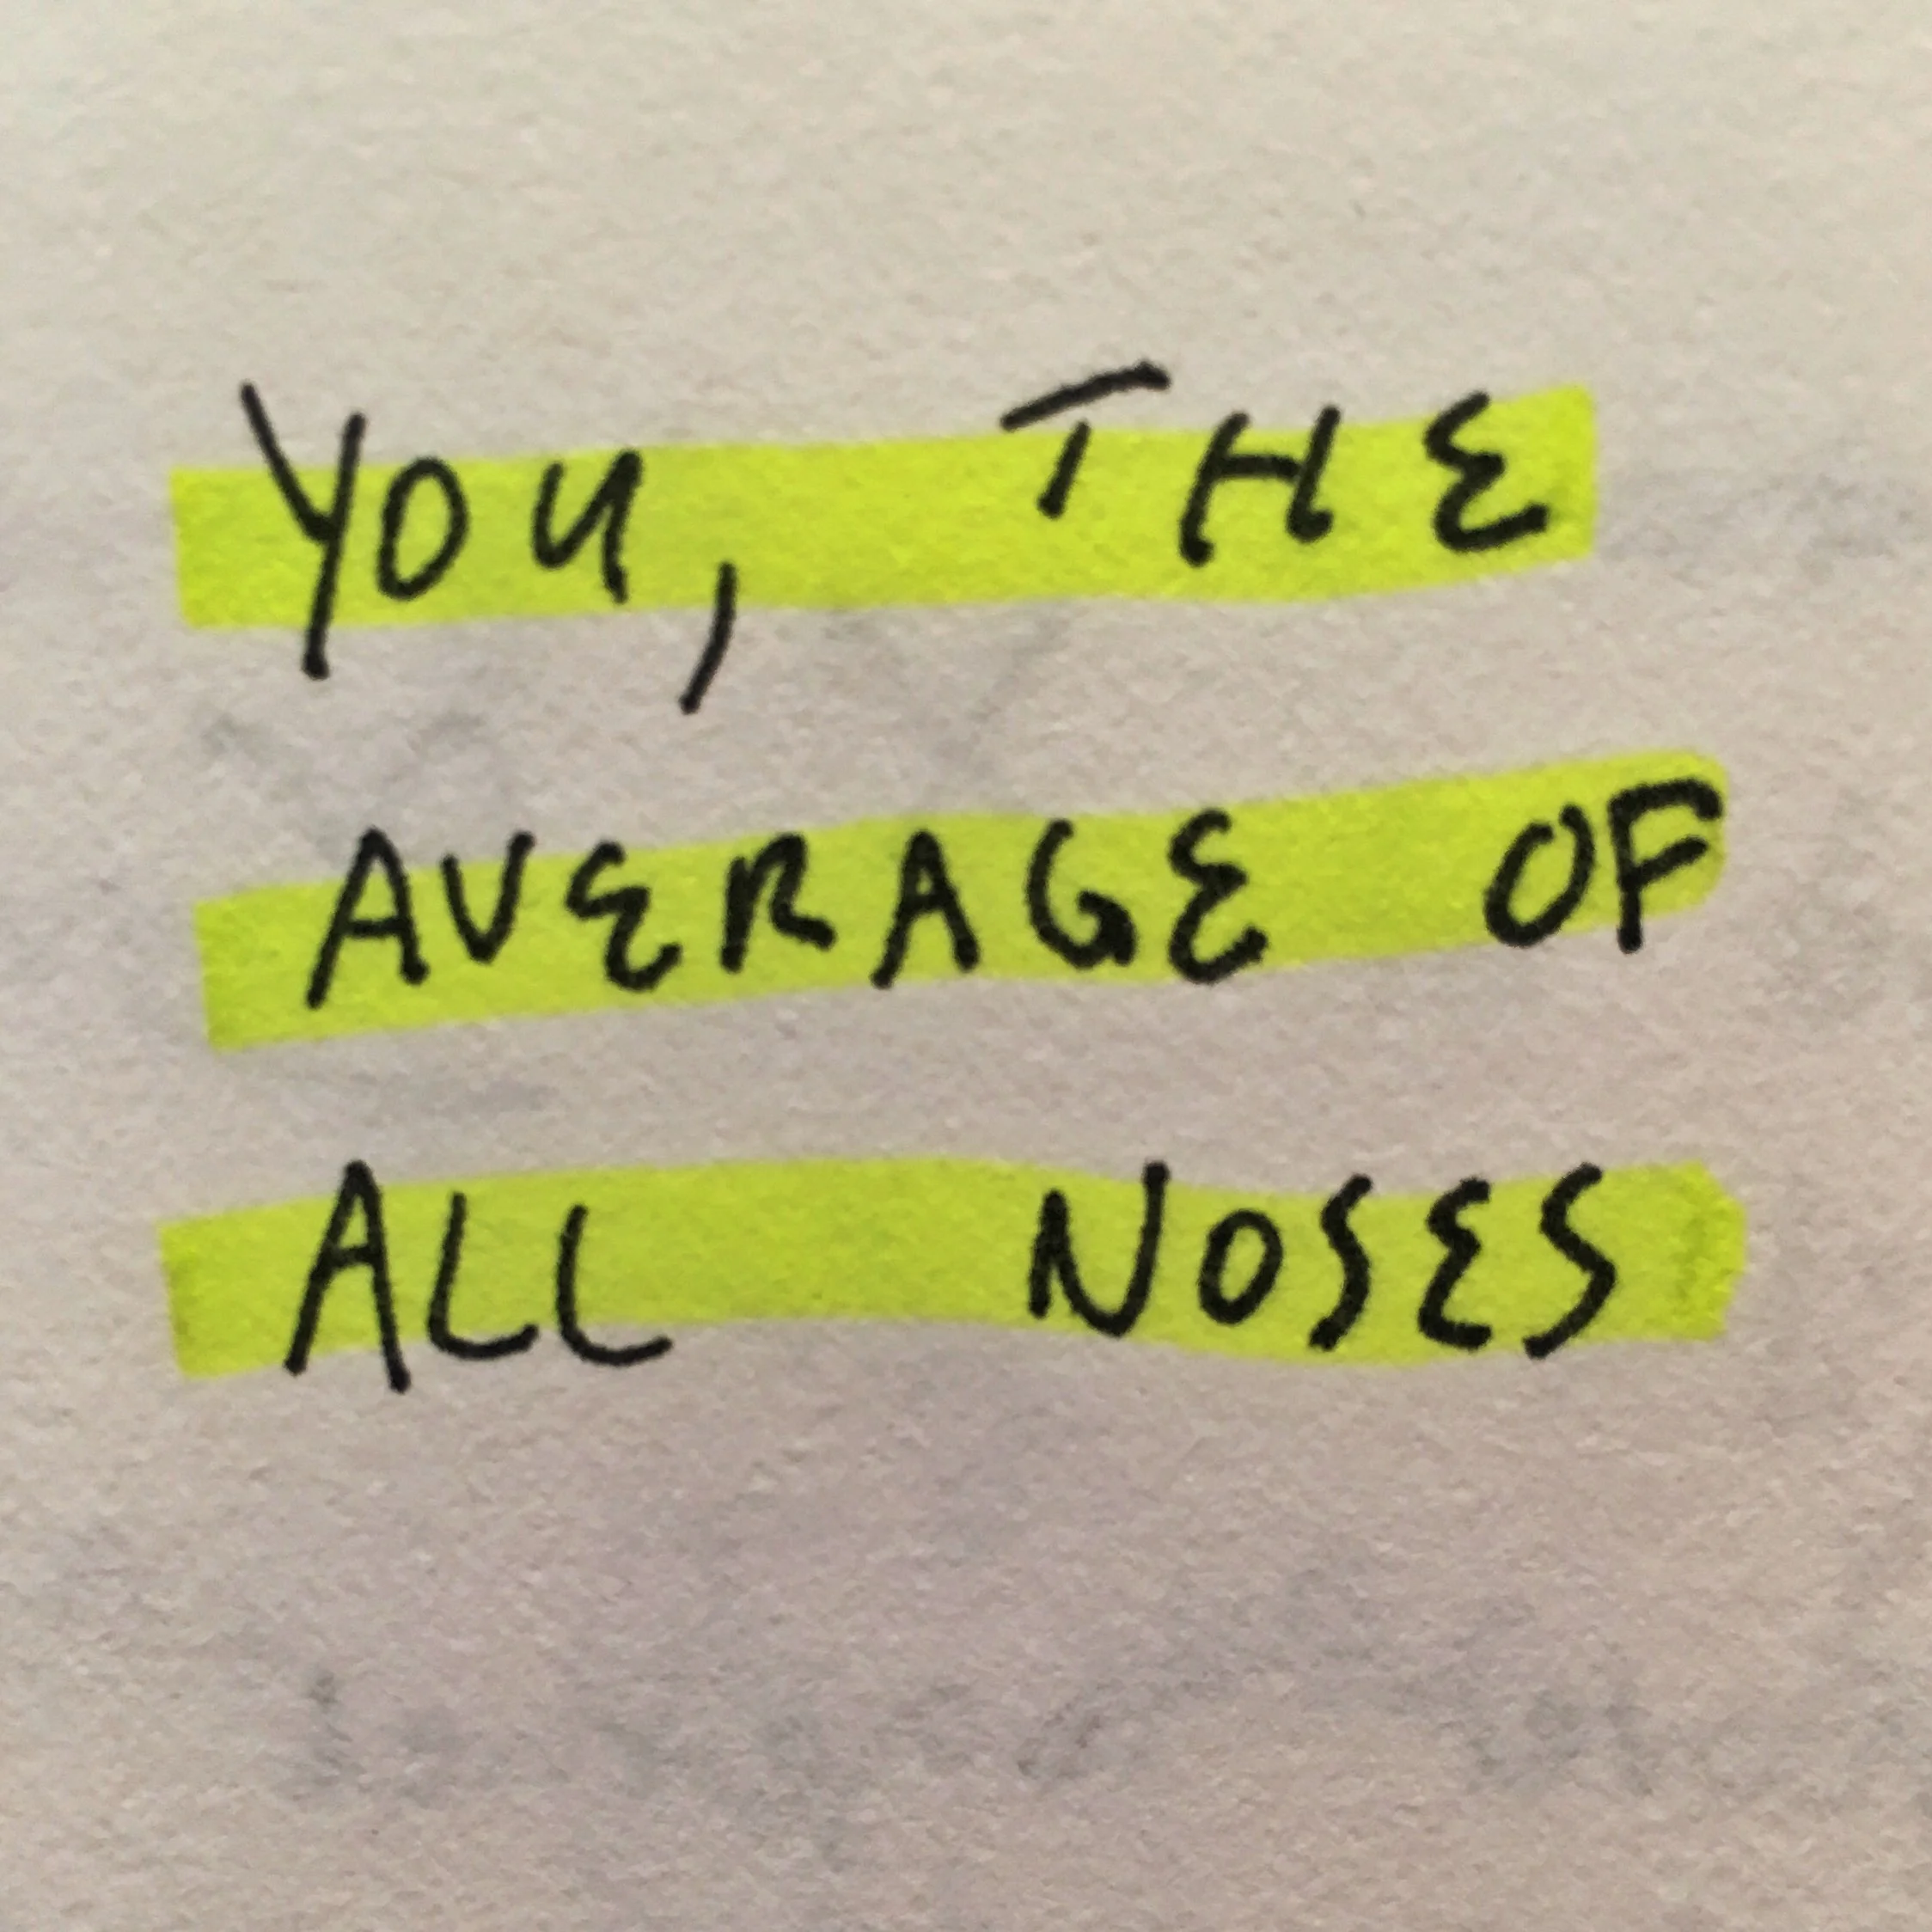 YOU, THE
AVERAGE OF
ALL NOSES